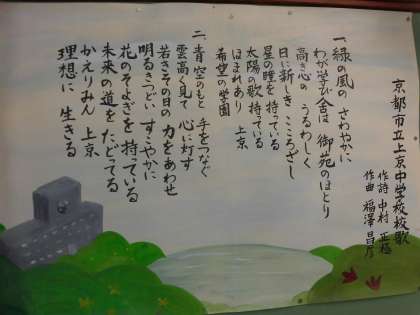 京都市立上京中学校校歌
作詩 中村 正
作曲 福澤 昌彦
一、緑の風の さわやかに
わが学び舎は 御苑のほとり
高き心の うるわしく
日に新しき こころざし
星の瞳を 持っている
太陽の歌 持っている
ほまれあり 上京
希望の学園
二、青空のもと 手をつなぐ
雲高く見て 心に灯す
若きその日の 力をあわせ
明るきつどい すこやかに
花のそよぎを 持っている
未来の道を たどってる
かえりみん 上京
理想に 生きる